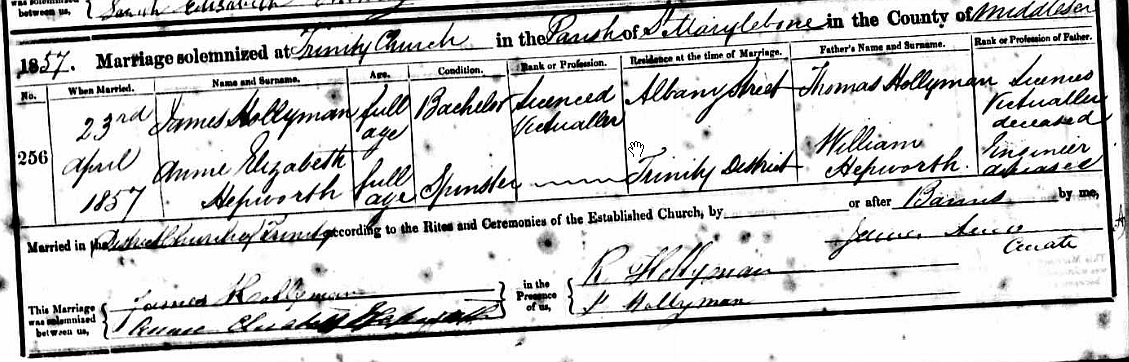 between us,
1857. Marriage solemnized at Trinity Church in the Parish of St Marylebone in the County of Middlesex
No. When Married. Name and Surname. Age. Condition. Rank or Profession. Residence at the time of Marriage. Father's Name and Surname. Rank or Profession of Father.
256 23rd April 1857 James Hollyman full age Bachelor Licenced Victualler Albany Street Thomas Hollyman Licenced Victualler deceased
Annie Elizabeth Hepworth full age Spinster Trinity District William Hepworth. Engineer deceased
Married in the District Church of Trinity according to the Rites and Ceremonies of the Established Church, by or after Banns by me,
James Curate
This Marriage was solemnized between us, James Hollyman in the Presence of us, R Hollyman
Annie Elizabeth Hepworth Hollyman